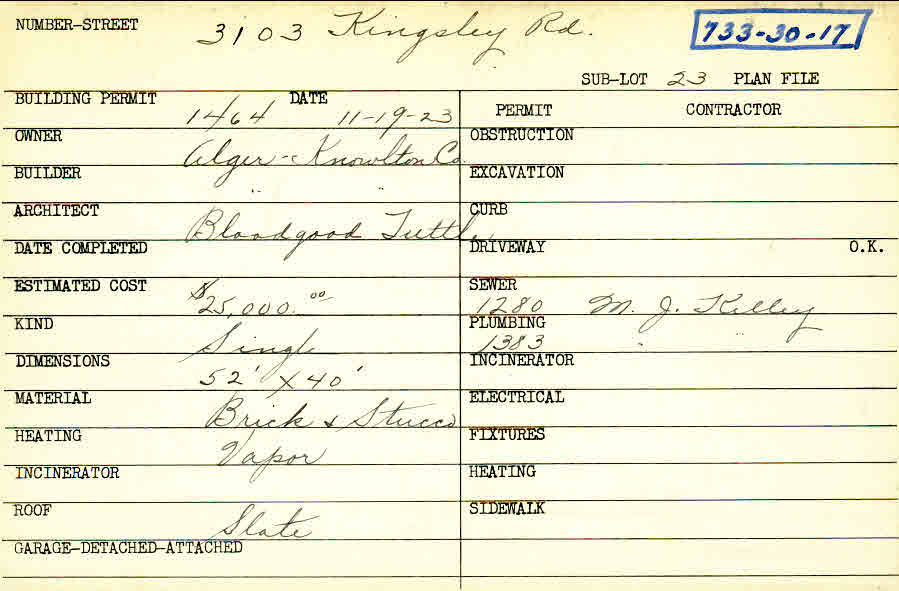 NUMBER-STREET 3103 Kingsley Rd. 733-30-17
SUB-LOT 23 PLAN FILE
BUILDING PERMIT 1464 DATE 11-19-23 PERMIT CONTRACTOR
OWNER Alger-Knowlton Co. OBSTRUCTION
BUILDER " " EXCAVATION
ARCHITECT Bloodgood Tuttle CURB
DATE COMPLETED DRIVEWAY O.K.
ESTIMATED COST $25,000.00 SEWER 1280 M. J. Kelley
KIND Single PLUMBING 1383
DIMENSIONS 52' X 40' INCINERATOR
MATERIAL Brick & Stucco ELECTRICAL
HEATING Vapor FIXTURES
INCINERATOR HEATING
ROOF Slate SIDEWALK
GARAGE-DETACHED-ATTACHED